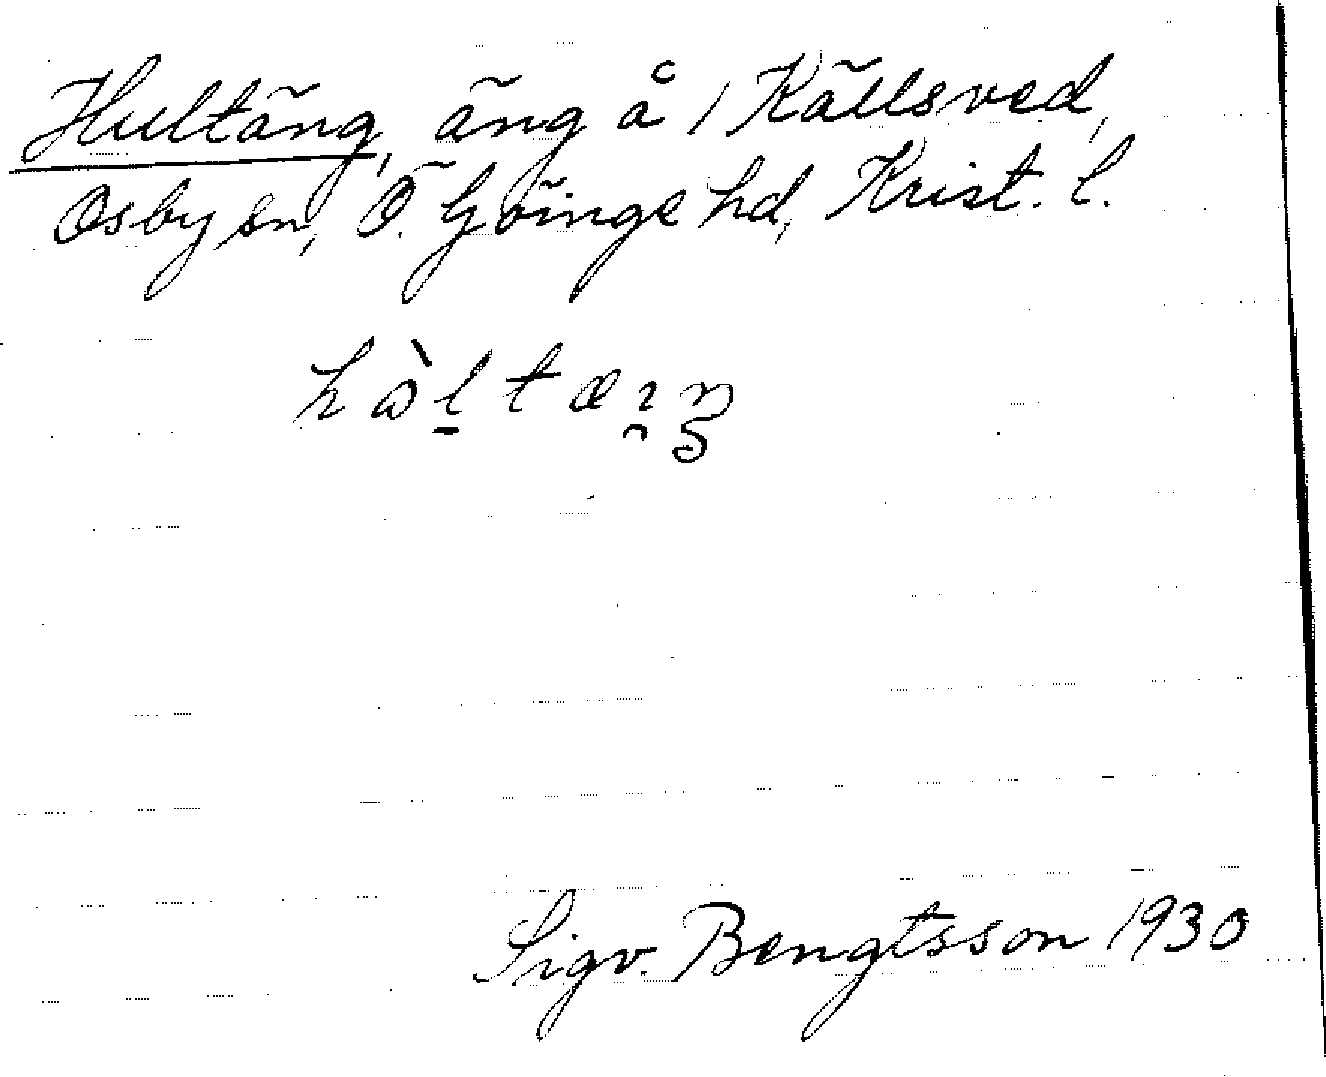 Hultäng, äng å 1 Källsved,
Osby sn, Ö. Göinge hd, Krist. l.
Sigv. Bengtsson 1930